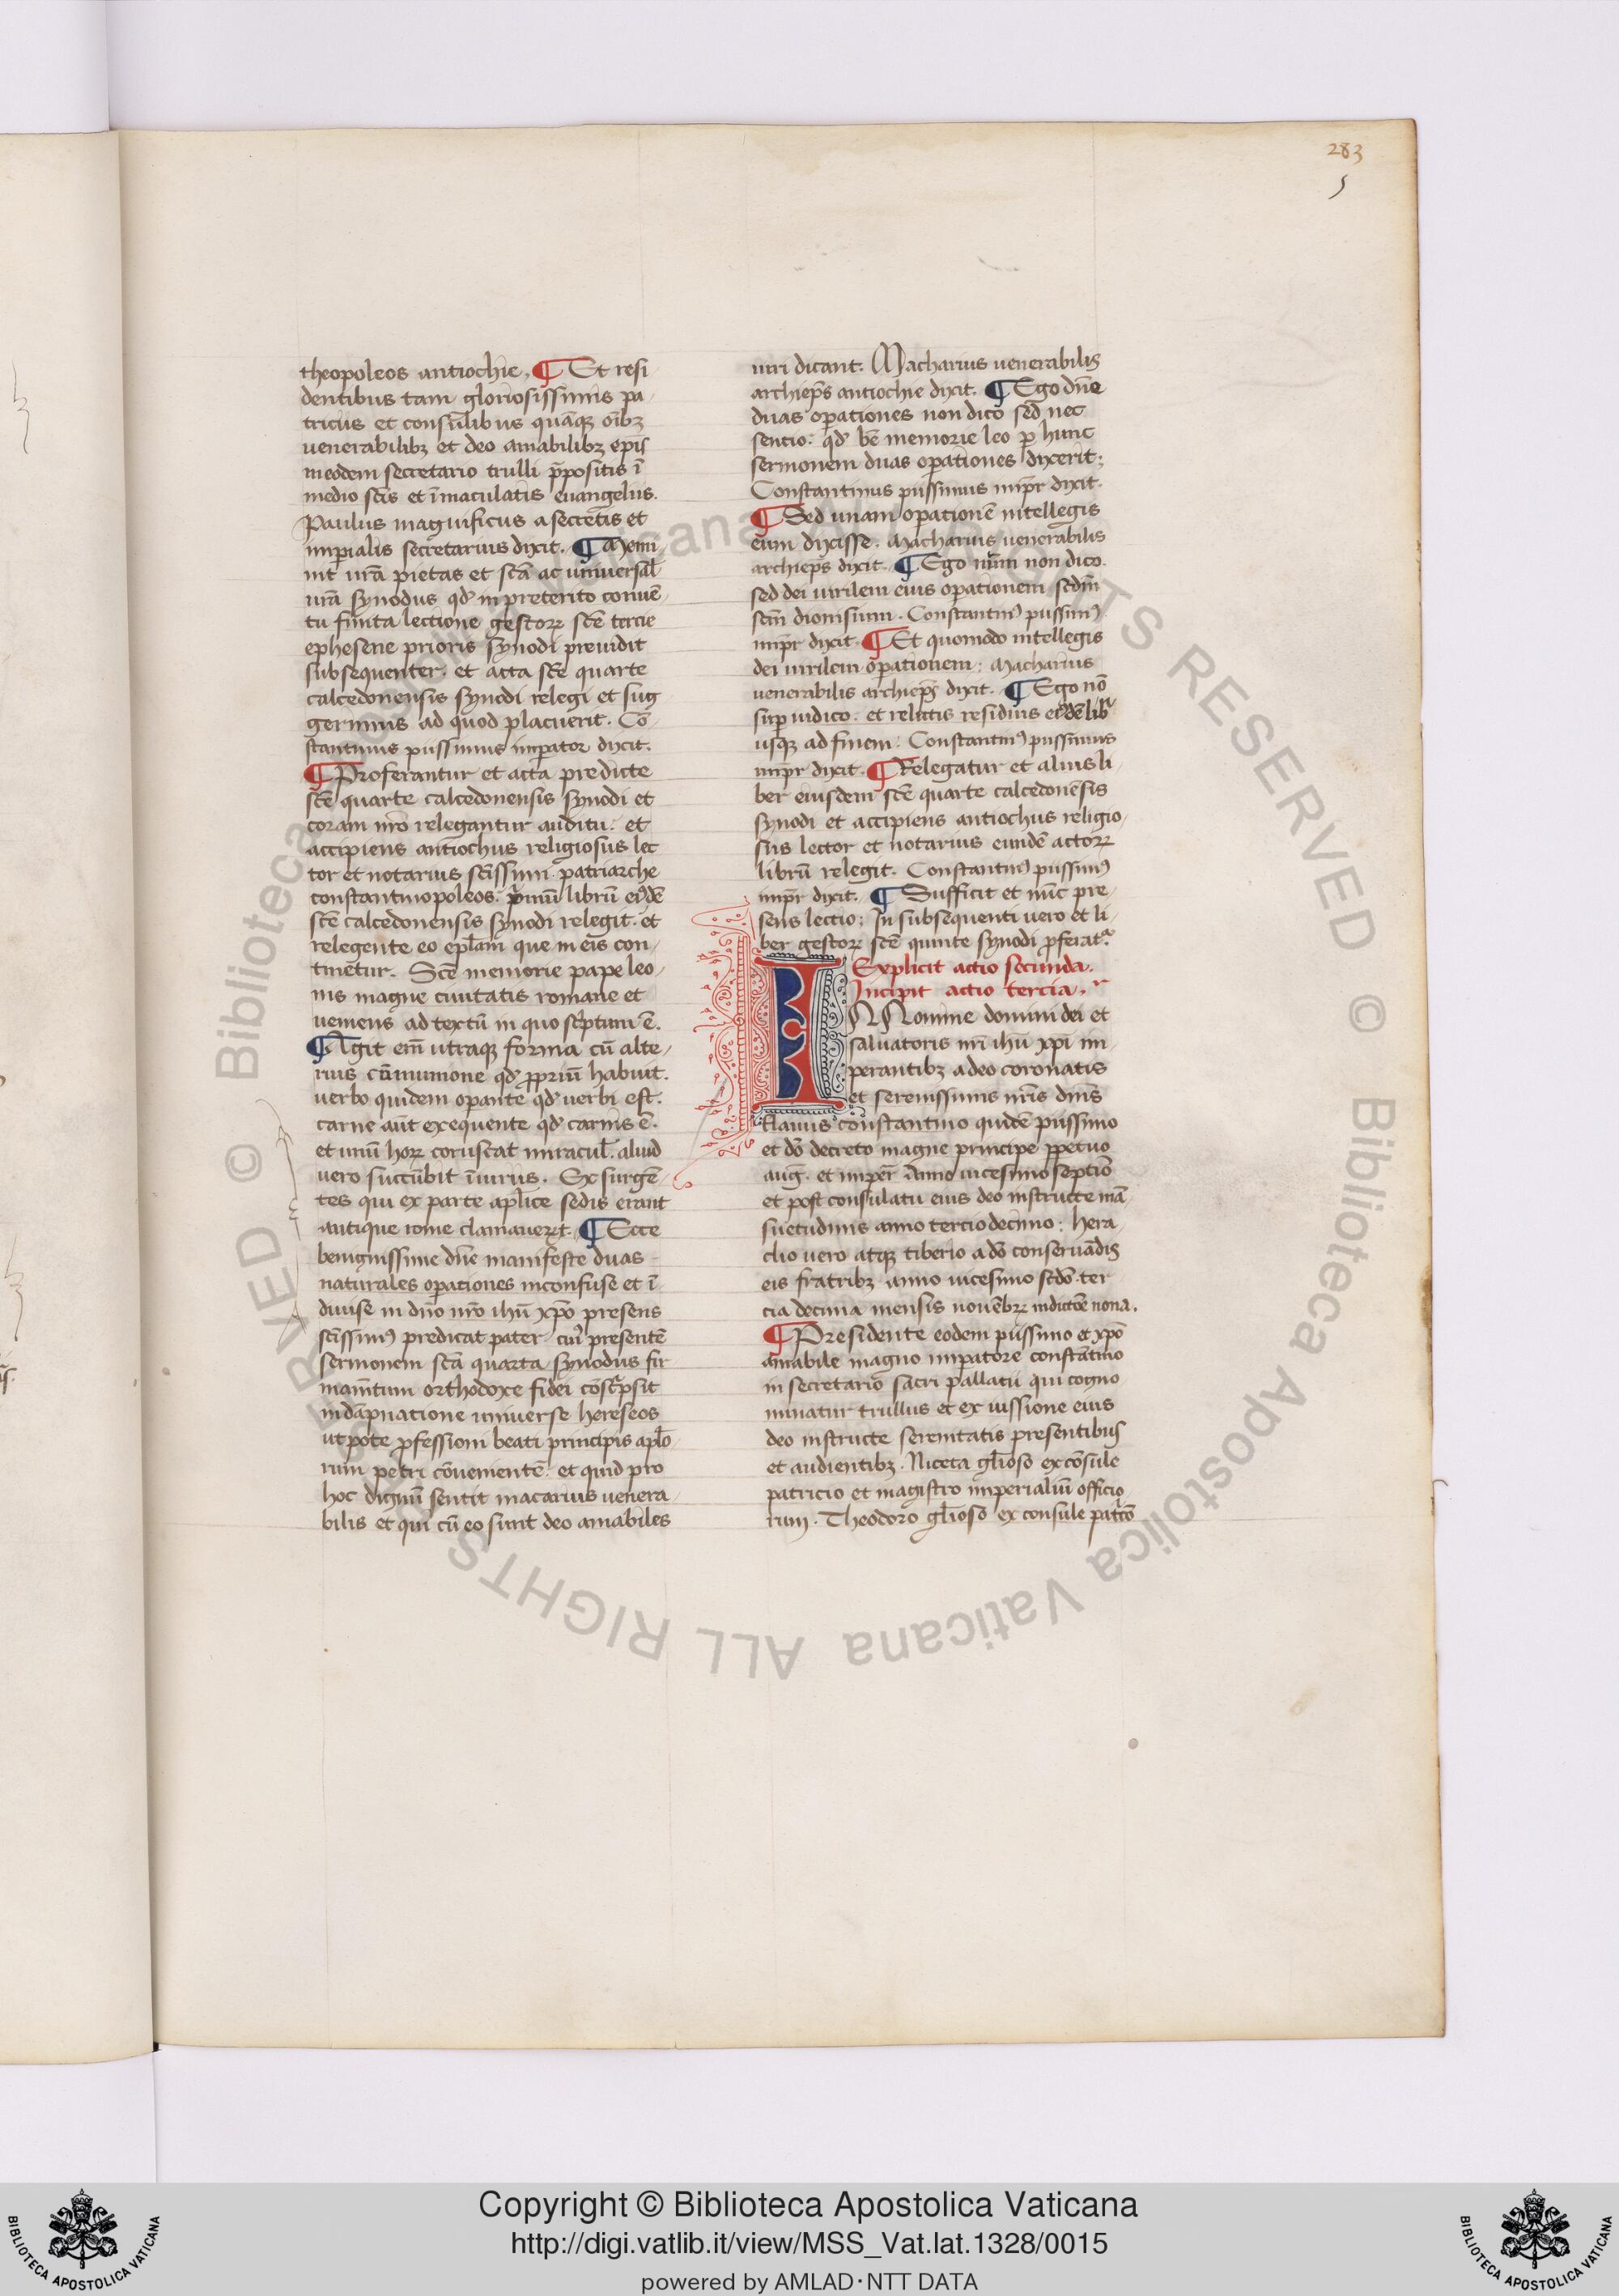 283
5
theopoleos antiochie. ¶ Et resi
dentibus tam gloriosissimis pa
tricus et consulibus quāqꝫ oībꝫ
venerabilibꝫ et deo amabilibꝫ epis
in eodem secretario trulli p̄positis ī
medio scīs et īmaculatis euangeliis.
Paulus magnificus a secretis et
imperialis secretarius dixit. ¶ Memi
nit vr̄a pietas et scā ac universal̄
vr̄a synodus qd̄ in preterito conuē
tu finita lectione gestoꝝ scē tercie
ephesene prioris synodi preuidit
subsequenter. et acta scē quarte
calcedonensis synodi relegi et sug
gerimus ad quod placuerit. Cō
stantinus piissimus imperator dixit.
¶ Proferantur et acta predicte
scē quarte calcedonensis synodi et
coram nr̄o relegantur auditu. et
accipiens antiochus religiosus lec
tor et notarius scīssimi patriarche
constantinopoleos. pͥmū librū eiꝰdē
scē calcedonensis synodi relegit. et
relegente eo epl̄am que in eis con
tinetur. Scē memorie pape leo
nis magne ciuitatis romane et
veniens ad textū in quo scͥptum ē.
¶ Agit em̄ utraqꝫ forma cū alte
rius cōmunione qd̄ ꝓpriū habuit.
verbo quidem operante qd̄ verbi est.
carne aūt exequente qd̄ carnis ē.
et unū hoꝝ coruscat miracul̄. aliud
vero succūbit īiuriis. Exsurgē
tes qui ex parte aplice sedis erant
antique rome clamauerūt. ¶ Ecce
benignissime dn̄e manifeste duas
naturales operationes inconfuse et ī
diuise in dn̄o nr̄o ihū xp̄o presens
scīssimꝰ predicat pater. cuiꝰ presentē
sermonem scā quarta synodus fir
mam̄tum orthodoxe fidei cōscͥpsit
in dāpnatione universe hereseos
utpote ꝓfessioni beati principis aplō
rum petri cōuenientē. et quid pro
hoc dignū sentit macarius venera
bilis et qui cū eo sunt deo amabiles
viri dicant. Macharius venerabilis
archiep̄s antiochie dixit. ¶ Ego dn̄e
duas operationes non dico sed nec
sentio: qd̄ bē memorie leo ꝑ hunc
sermonem duas operationes dixerit;
Constantinus piissimus imp̄r dixit.
¶ Sed unam operationē intellegis
eum dixisse. Macharius venerabilis
archiep̄s dixit. ¶ Ego nūm non dico.
sed dei virilem eius operationem scdm̄
scm̄ dionisium. Constantinꝰ piissimꝰ
imp̄r dixit. ¶ Et quomodo intellegis
dei virilem operationem: Macharius
venerabilis archiep̄s dixit. ¶ Ego nō
super iudico. et relictis residuis eiꝰdē libͥ
usqꝫ ad finem: Constantinꝰ piissimus
imp̄r dixit. ¶ Relegatur et alius li
ber eiusdem scē quarte calcedonēsis
synodi et accipiens antiochus religio
sus lector et notarius eundē actoꝝ
librū relegit. Constantinꝰ piissimꝰ
imp̄r dixit. ¶ Sufficit et nūc pre
sens lectio: In subsequenti vero et li
ber gestoꝝ scē quinte synodi ꝓferatͬ.
Explicit actio secunda.
Incipit actio tercia.
IN Nomine domini dei et
salvatoris nr̄i ihū xp̄i im
perantibꝫ a deo coronatis
et serenissimis nr̄is dn̄is
flauiis constantino quidē piissimo
et dō decreto magne principe ꝑpetuo
auḡ. et imper̄ Anno vicesimo septīo
et post consulatū eius deo instructe mā
suetudinis anno terciodecimo: hera
clio vero atqꝫ tiberio a dō conseruādis
eis fratribꝫ anno vicesimo scdō. ter
cia decima mensis nouēbꝝ indictōe nona.
¶ Presidente eodem piissimo et xp̄o
amabile magno imperatore constātino
in secretario sacri pallatii qui cogno
minatur trullus et ex iussione eius
deo instructe serenitatis presentibus
et audientibꝫ. Niceta gl̄ioso ex cōsule
patricio et magistro imperialiū officio
rum. Theodoro gl̄ioso ex consule patͥcō
© Biblioteca Apostolica Vaticana ALL RIGHTS RESERVED
Copyright © Biblioteca Apostolica Vaticana
http://digi.vatlib.it/view/MSS_Vat.lat.1328/0015
powered by AMLAD·NTT DATA
BIBLIOTECA APOSTOLICA VATICANA
BIBLIOTECA APOSTOLICA VATICANA